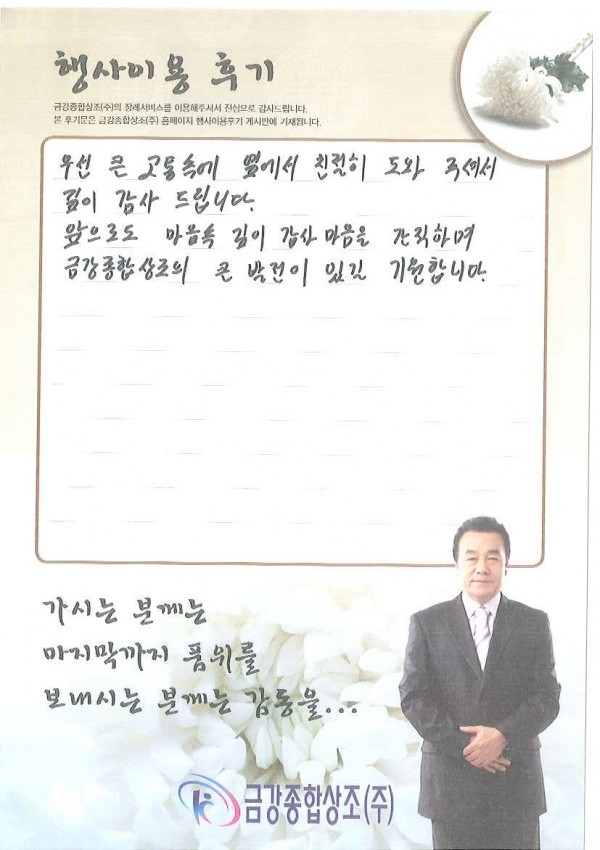 행사이용 후기
금강종합상조(주)의 장례서비스를 이용해주셔서 진심으로 감사드립니다.
본 후기문은 금강종합상조(주) 홈페이지 행사이용후기 게시판에 기재됩니다.
우선 큰 고통속에 옆에서 친절히 도와 주셔서
깊이 감사 드립니다.
앞으로도 마음속 깊이 감사 마음을 간직하며
금강종합상조의 큰 발전이 있길 기원합니다.
가시는 분께는
마지막까지 품위를
보내시는 분께는 감동을...
금강종합상조(주)